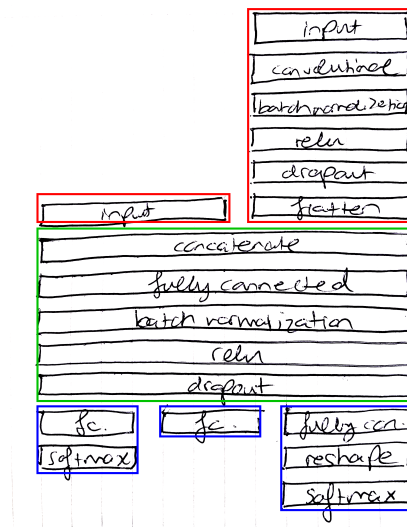 input
convolutional
batchnormalization
relu
dropout
flatten
input
concatenate
fully connected
batch normalization
relu
dropout
fc.
softmax
fc.
fully con.
reshape
softmax